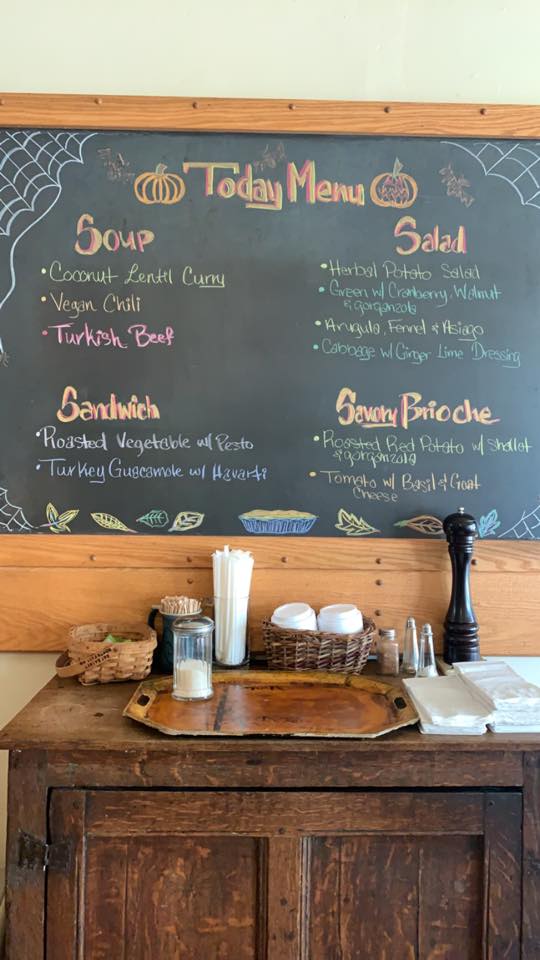 Today Menu
Soup
• Coconut Lentil Curry
• Vegan Chili
• Turkish Beef
Salad
• Herbal Potato Salad
• Green w/ Cranberry, Walnut
& gorgonzola
• Arugula, Fennel & Asiago
• Cabbage w/ Ginger Lime Dressing
Sandwich
• Roasted Vegetable w/ Pesto
• Turkey Guacamole w/ Havarti
Savory Brioche
• Roasted Red Potato w/ Shallot
& gorgonzola
• Tomato w/ Basil & Goat
Cheese